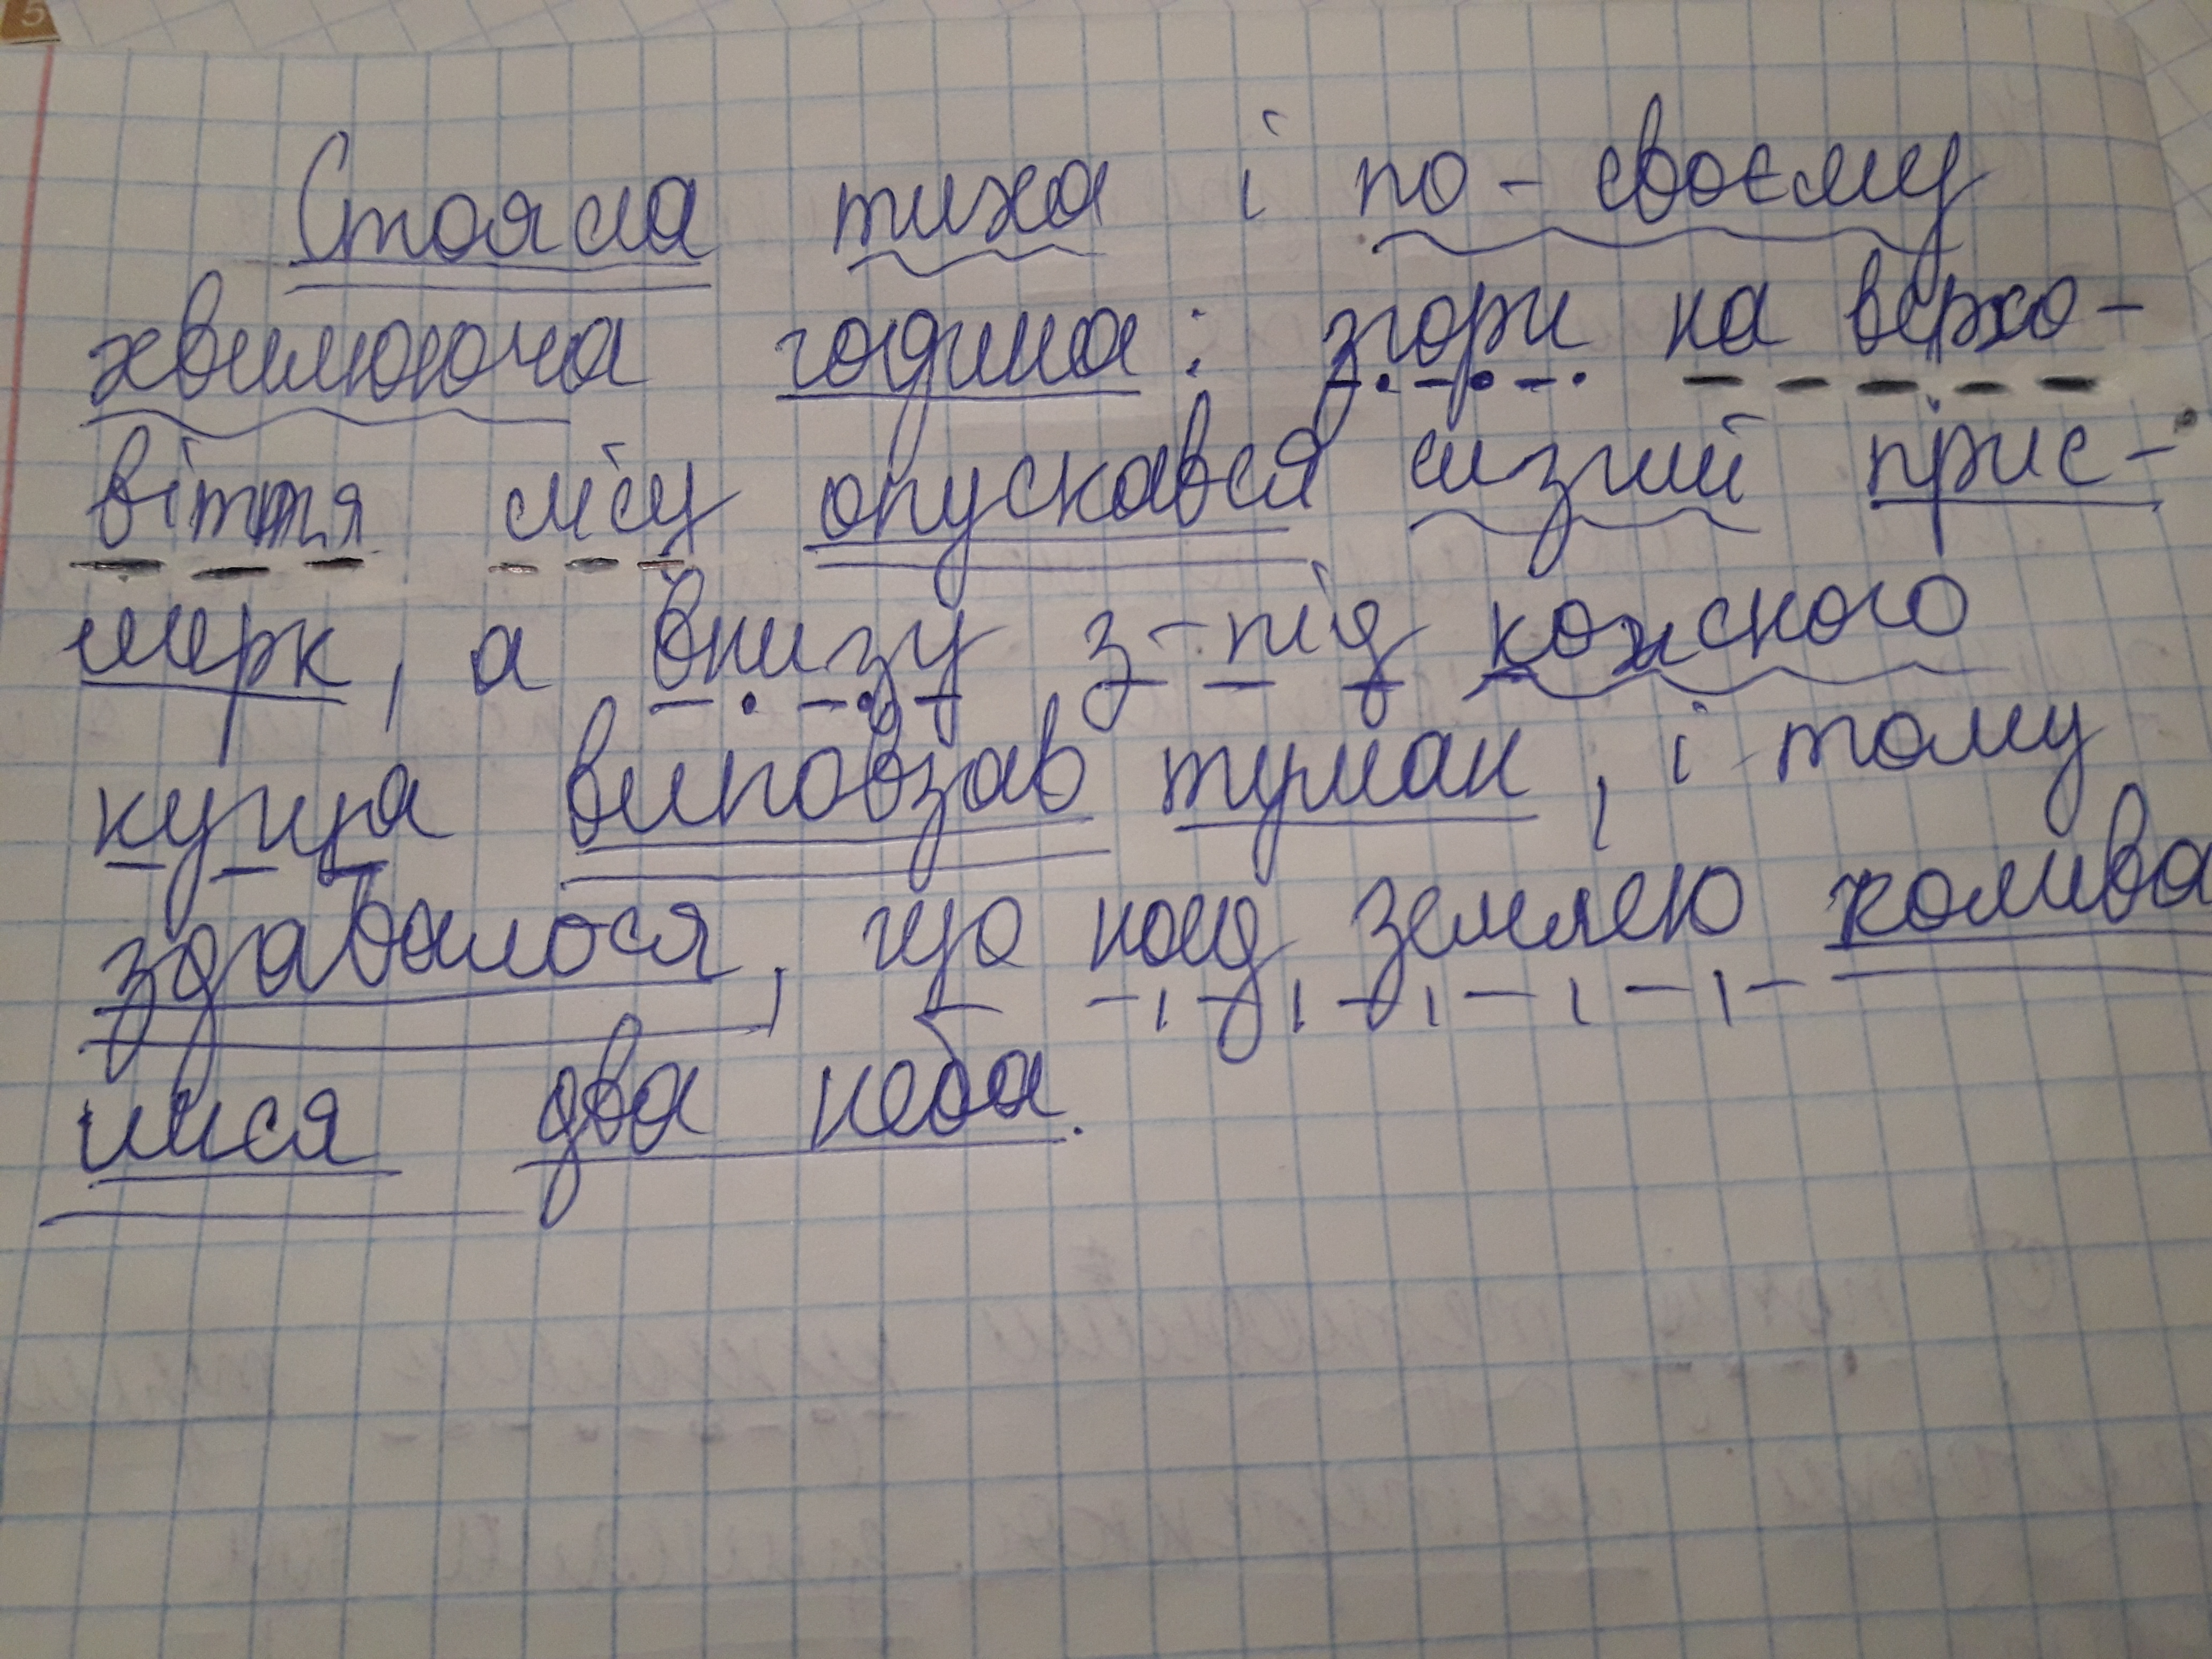 Стояла тиха і по-своєму
хвилююча година: згори на верхо-
віття лісу опускався сизий прис-
мерк, а внизу з-під кожного
куща виповзав туман, і тому
здавалося, що над землею колива
лися два неба.